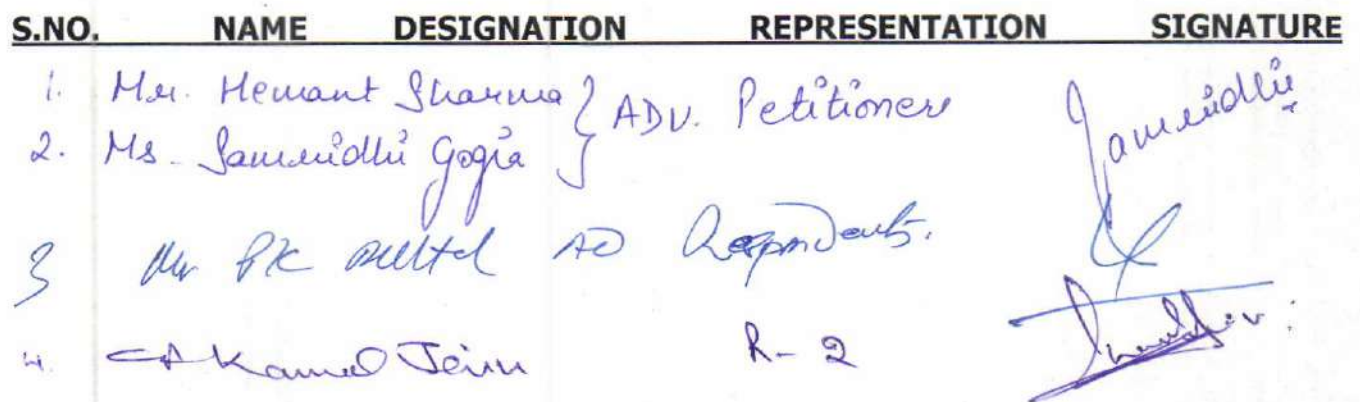 S.NO. NAME DESIGNATION REPRESENTATION SIGNATURE
1. Mr. Hemant Sharma } ADV. Petitioners
2. Ms. Samridhi Gogia
3 Mr PK Respondents.
4. CA Kamal Jain R-2